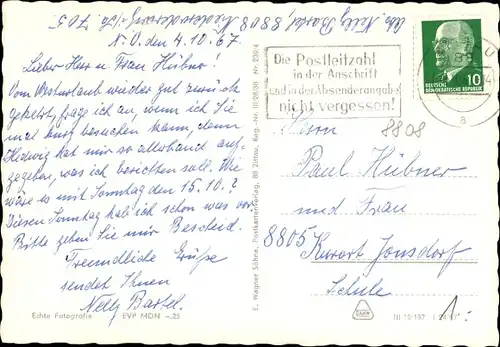 Abs. Nelly Bartel, 8808 Niederoderwitz, 705
N.O. den 4.10.67.
Lieber Herr u. Frau Hübner!
Vom Urlaub wieder gut zurück
gekehrt, frage ich an, wenn ich Sie
mal kurz besuchen kann, denn
Hedwig hat mir so allerhand auf-
gegeben, was ich berichten soll. Wie
wäre es mit Sonntag den 15.10.?
Diesen Sonntag hab ich schon was vor.
Bitte geben Sie mir Bescheid.
Freundliche Grüße
sendet Ihnen
Nelly Bartel.
Echte Fotografie EVP MDN –.25
E. Wagner Söhne, Postkartenverlag, 88 Zittau, Reg.-Nr. III/28/36 Nr. 2304
Die Postleitzahl
in der Anschrift
und in der Absenderangabe
nicht vergessen!
10
DEUTSCHE
DEMOKRATISCHE REPUBLIK
a
8808
Herrn
Paul Hübner
und Frau
8805 Kurort Jonsdorf
Schule
III 15-197
1.-